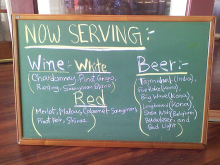 NOW SERVING:-
Wine - White
(Chardonnay, Pinot Grigio,
Riesling, Sauvignon Blanc)
Red
(Merlot, Malbec, Cabernet Sauvignon
Pinot Noir, Shiraz)
Beer:-
Tajmahal (India),
Fire Rock (Kona)
Big Wave (Kona)
Longboard (Kona)
Stella Artois (Belgium)
Bud Light)